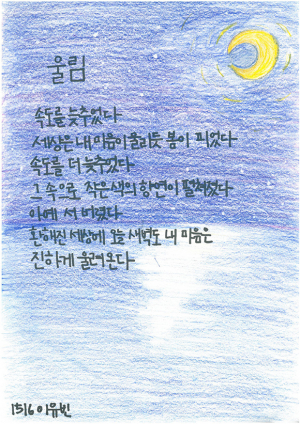 울림
속도를 늦추었다
세상은 내 마음이 울리듯 봄이 피었다
속도를 더 늦추었다
그 속으로 작은 색의 향연이 펼쳐졌다
아예 서 버렸다
환해진 세상에 오늘 새벽도 내 마음은
진하게 울려온다
1516 이유빈